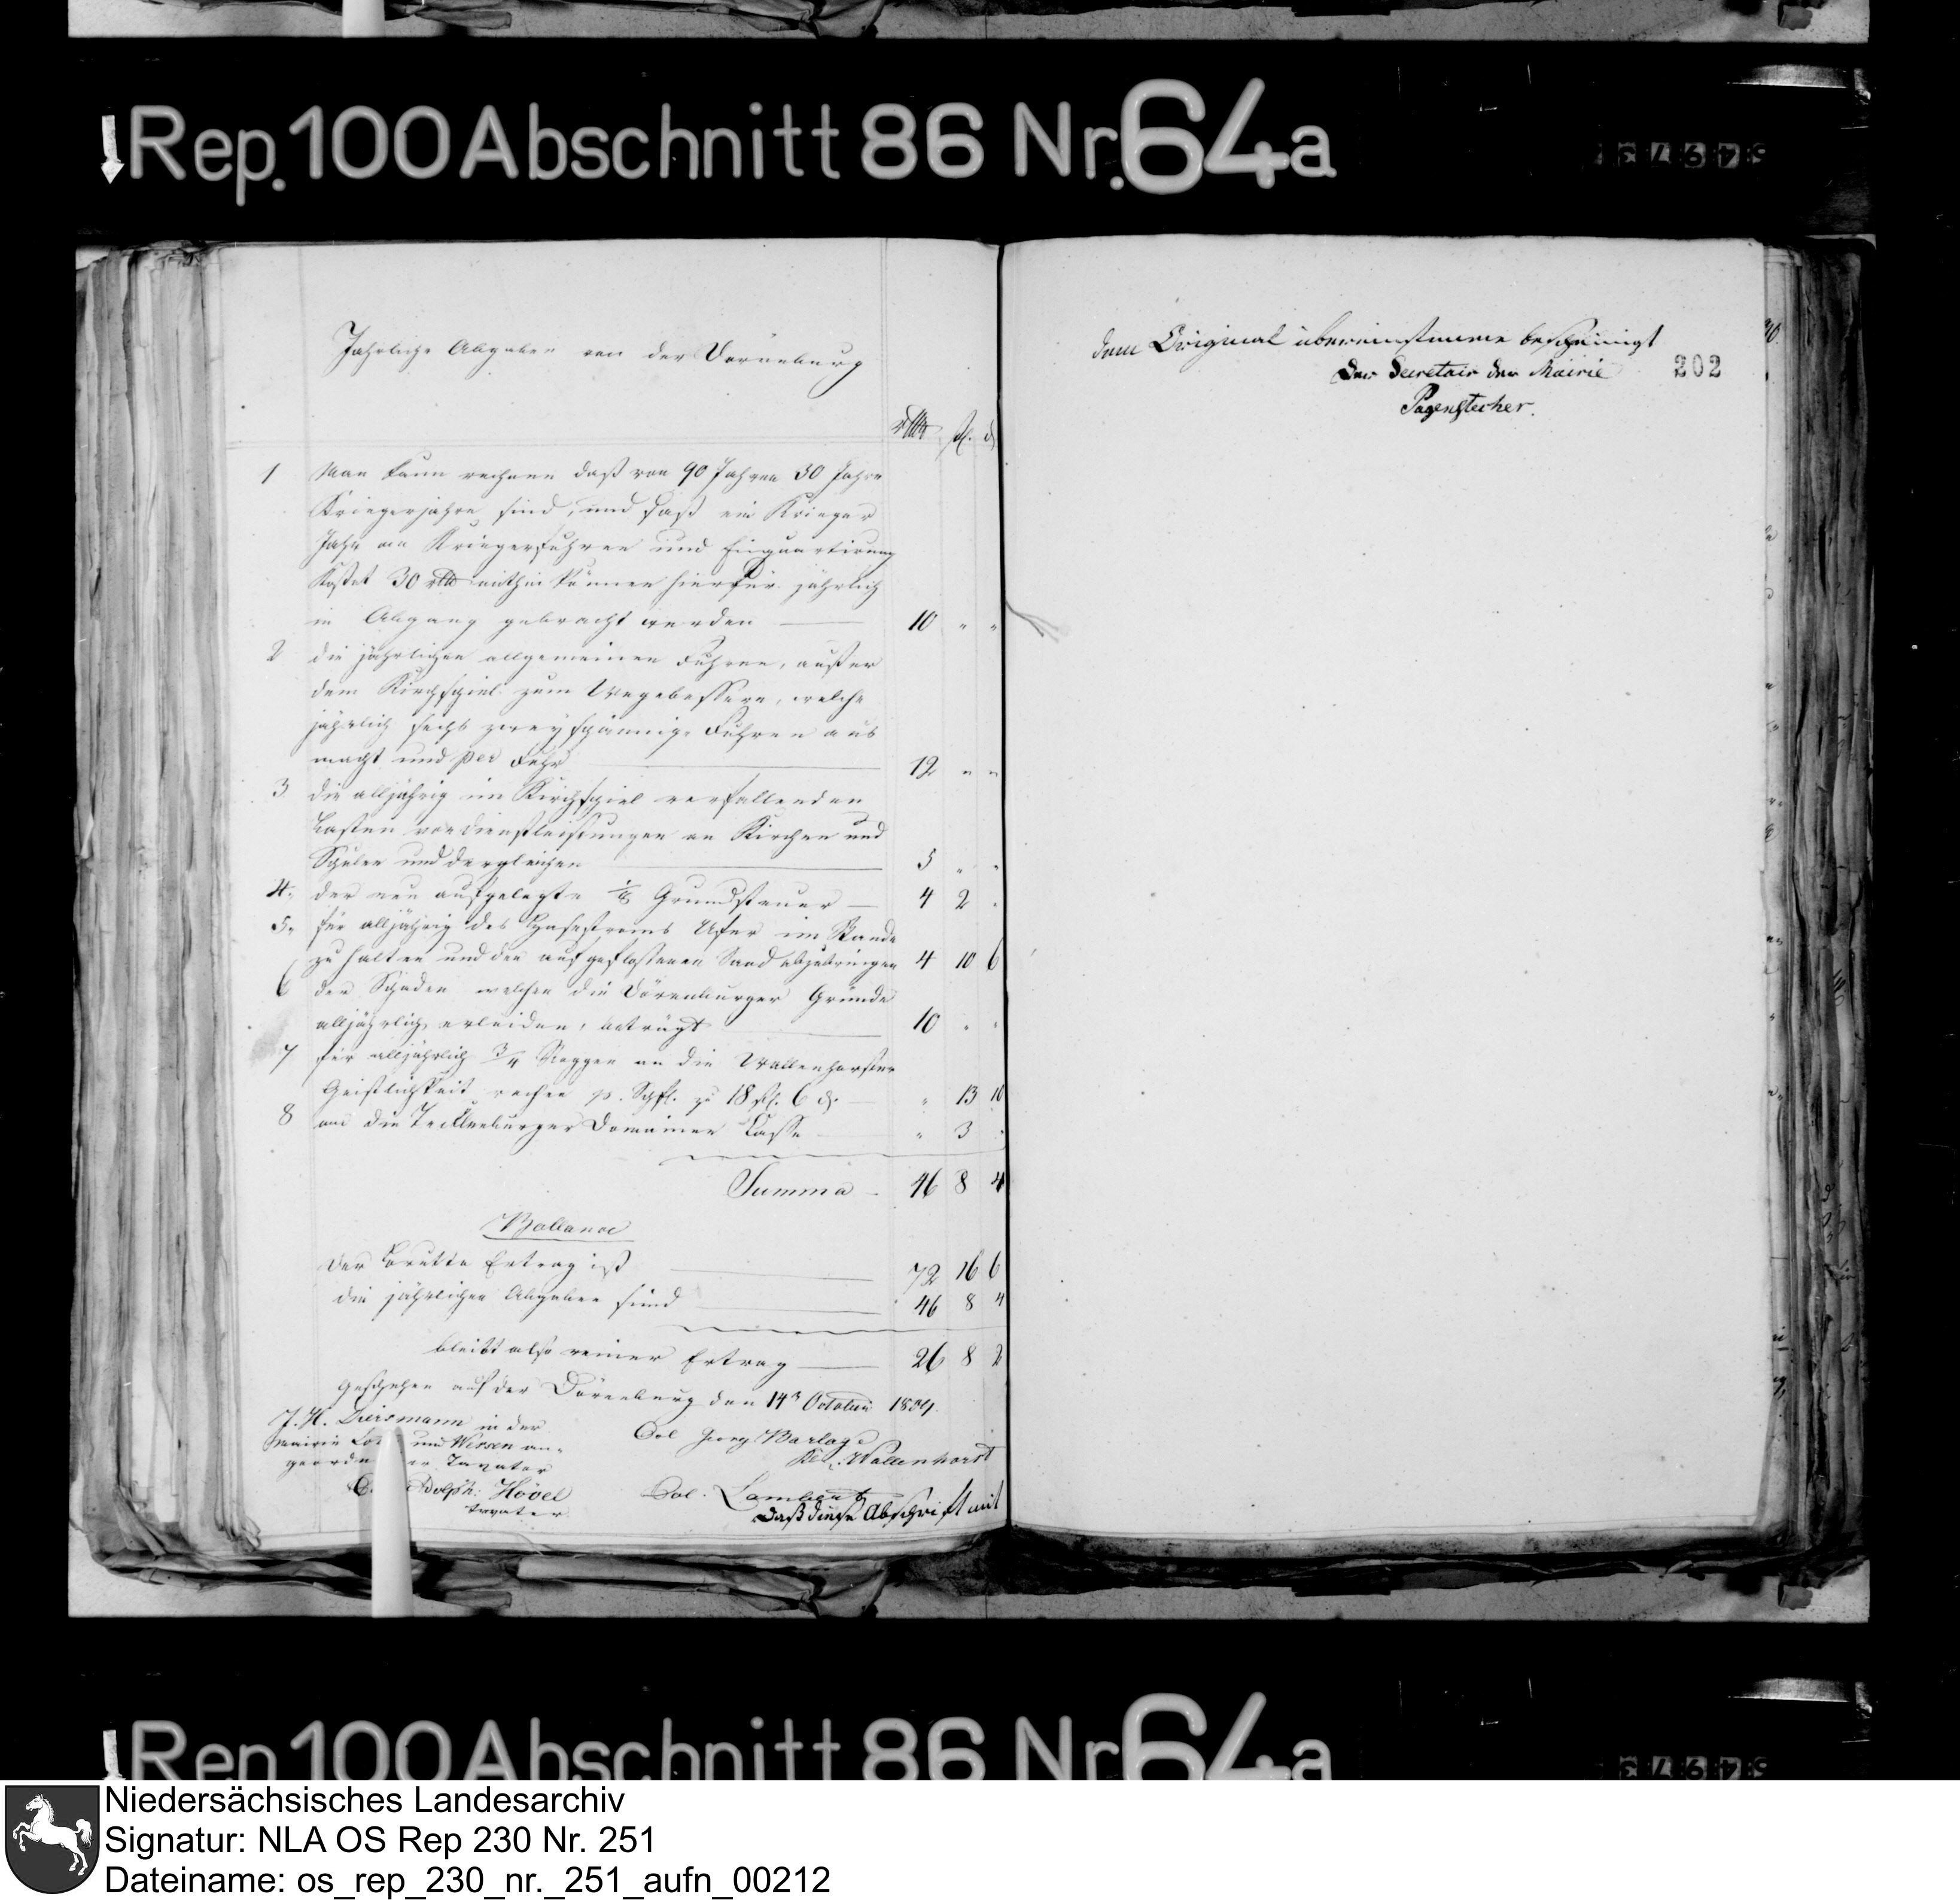 Rep. 100 Abschnitt 86 Nr. 64a
Jahrliche Abgaben von der Dörenburg
rthlr ßl. d
1 Man kann rechnen daß von 90 Jahren 30 Jahre
Kriegerjahre sind, und daß ein Krieger
Jahr an Kriegerfuhren und Einquartirung
kostet 30 rthlr mithin können hierfür jährlich
in Abgang gebracht werden 10 " "
2 die jährlichen allgemeinen Fuhren, außer
dem Kirchspiel zum Wegebessern, welche
jährlich sechs zweyspännige Fuhren aus
macht und per Fuhr 12 " "
3 die alljährig im Kirchspiel verfallenden
Lasten von dienstleistungen an Kirchen und
Schulen und dergleichen 5 " "
4. der neu aufgelegte Grundsteuer 4 2 "
5. für alljährig des Hasestroms Ufer im Stande
zu halten und den aufgefloßenen Sand abzubringen 4 10 6
6 der Schaden welchen die Dörenburger Gründe
alljährlich erleiden, beträgt 10 " "
7 für alljährlich 3/4 Roggen an die Wallenhorster
Geistlichkeit rechne p. Schfl. zu 18 ßl. 6 d. " 13 10
8 an die Tecklenburger Domainen Casse " 3 "
Summa 46 8 4
Ballance
Der Brutto Ertrag ist 72 16 6
die jährlichen Abgaben sind 46 8 4
bleibt also reiner Ertrag 26 8 2
Geschehen auf der Dörenburg den 14ⁿ October 1809.
J. H. Duirsmann in der
Mairie und Wersen an-
Taxator
Col Georg Barlage
Wallenhorst
Adolph: Hövel
Taxator
Col. Lambert
Daß diese Abschrift mit
dem Original übereinstimme bescheinigt
Der Secretair der Mairie
Pagenstecher.
202
Rep. 100 Abschnitt 86 Nr. 64a
Niedersächsisches Landesarchiv
Signatur: NLA OS Rep 230 Nr. 251
Dateiname: os_rep_230_nr._251_aufn_00212